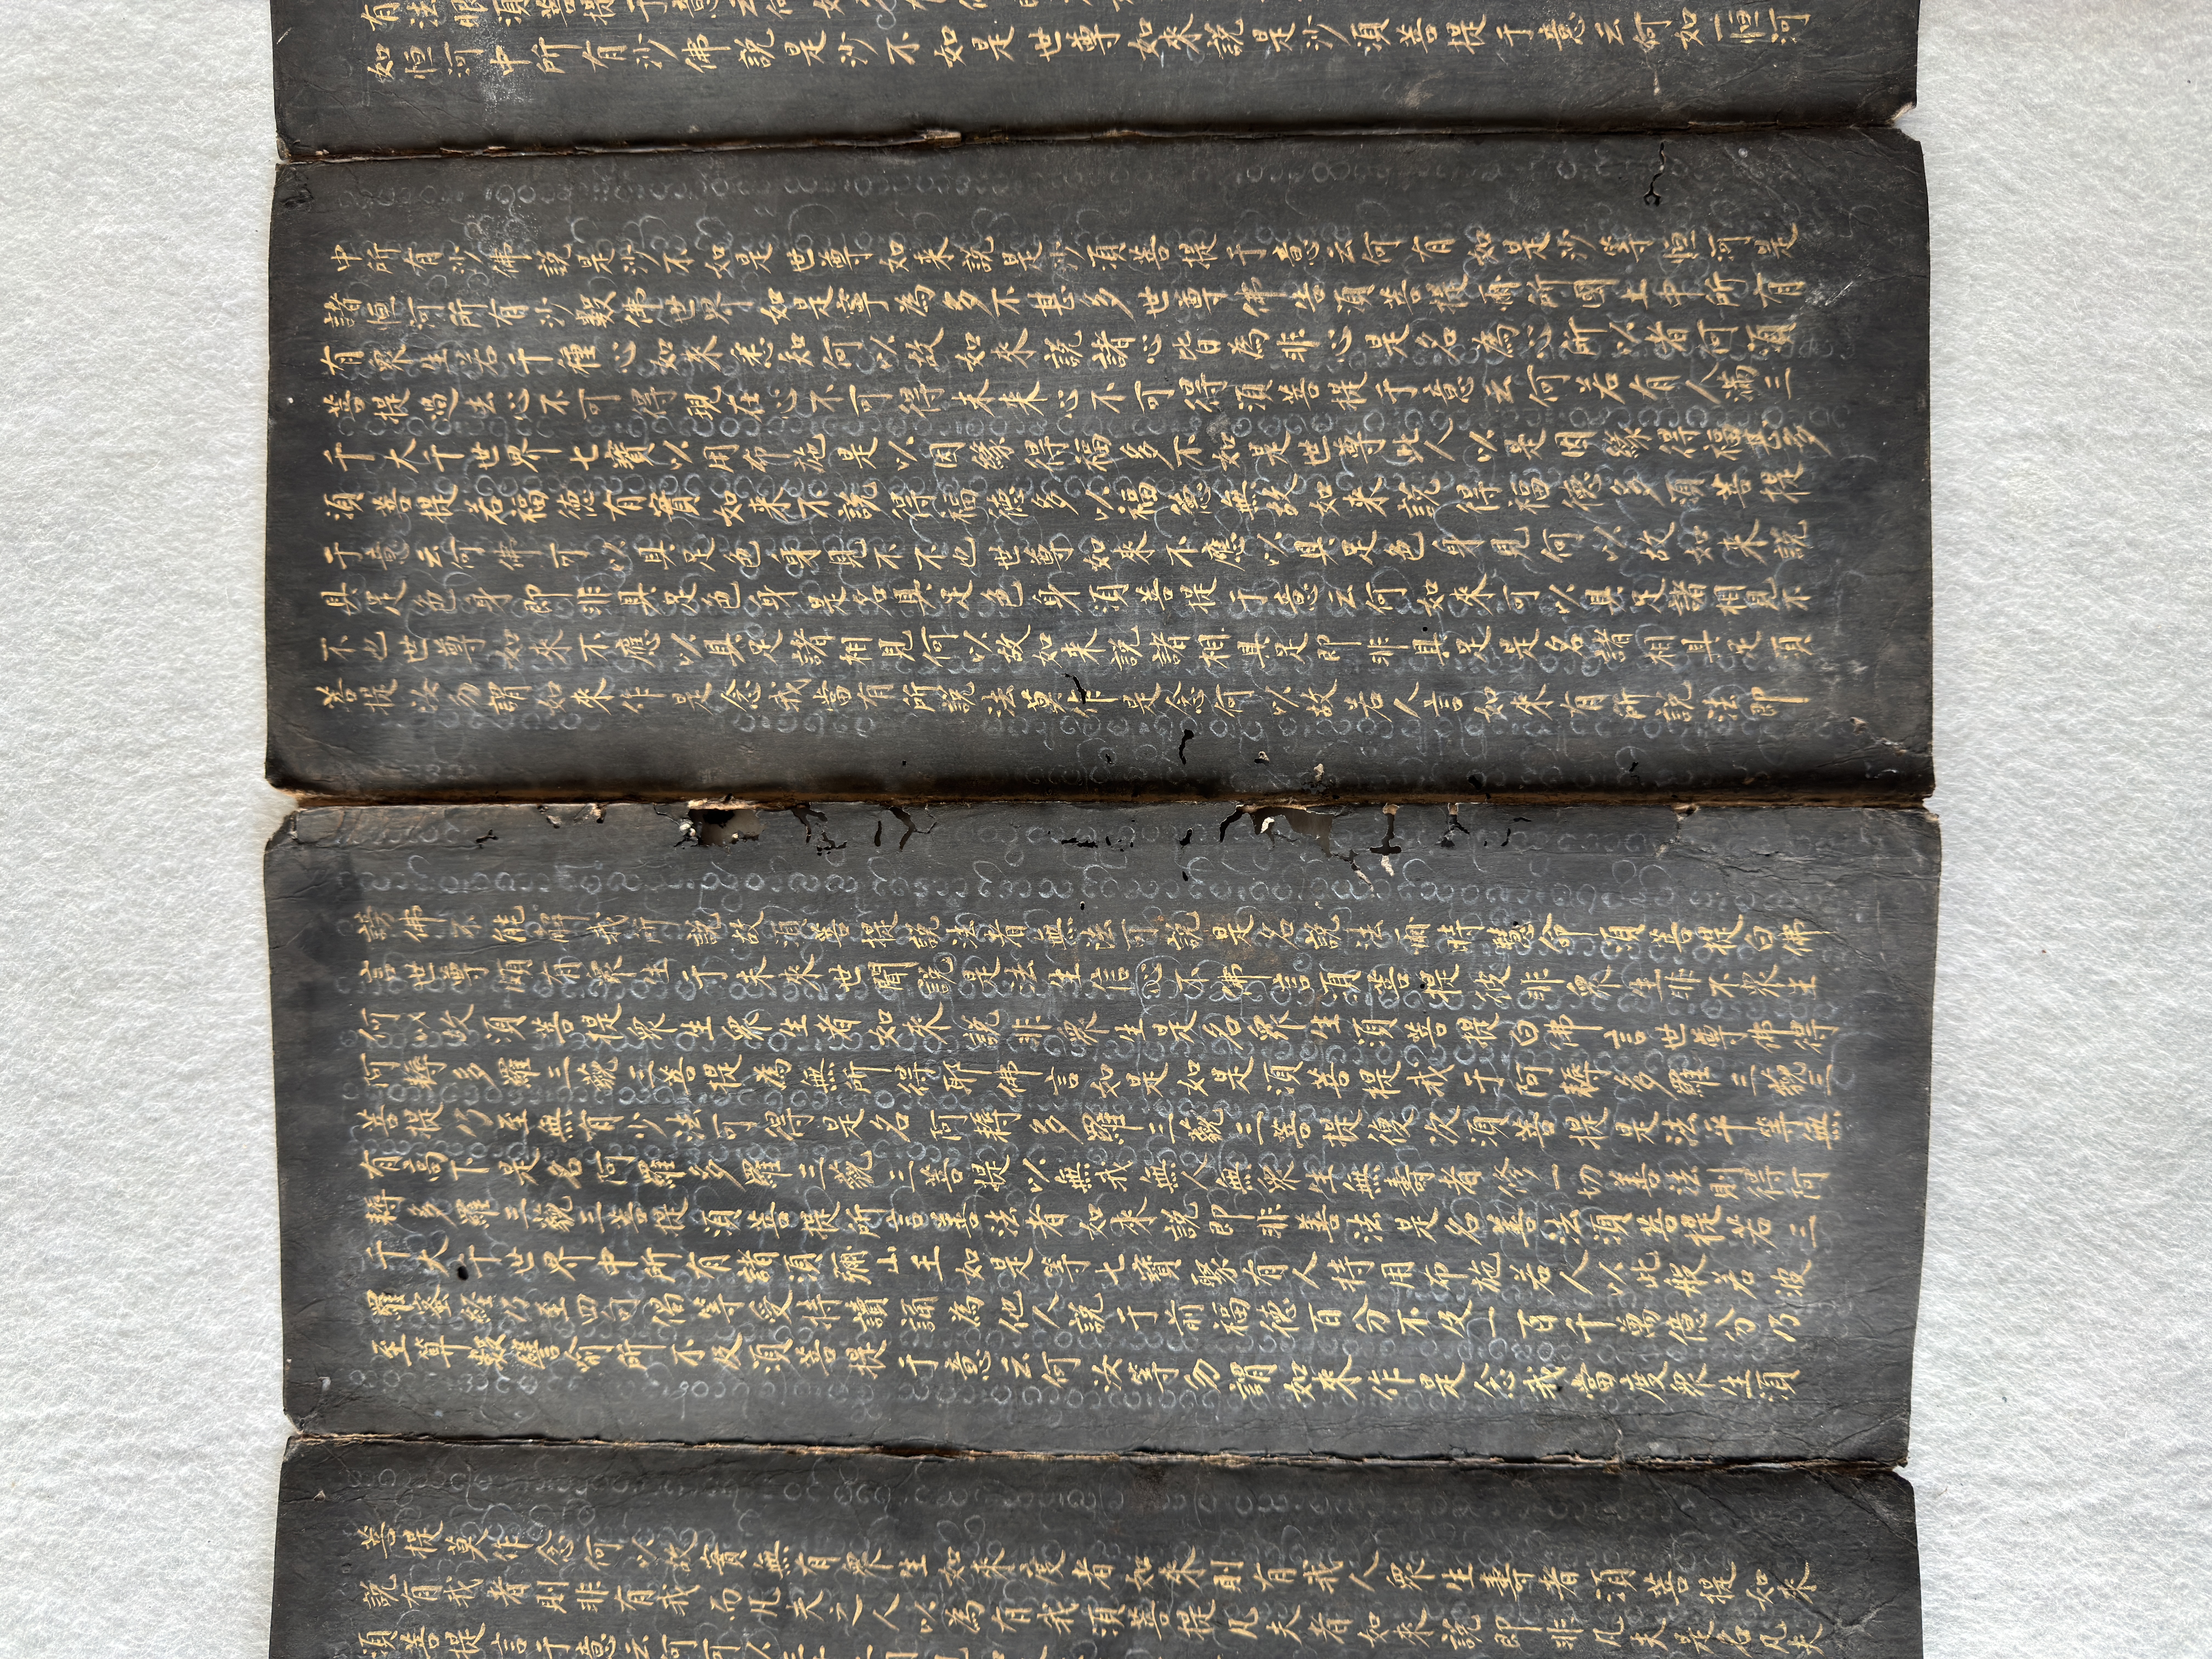 有法眼須菩提于意云何
如恒河中所有沙佛說是沙不如是世尊如來說是沙須菩提于意云何如一恒河
中所有沙佛說是沙不如是世尊如來說是沙須菩提于意云何有如是沙等恒河是
諸恒河所有沙數佛世界如是寧為多不甚多世尊佛告須菩提爾所國土中所有
有眾生若干種心如來悉知何以故如來說諸心皆為非心是名為心所以者何須
菩提過去心不可得現在心不可得未來心不可得須菩提于意云何若有人滿三
千大千世界七寶以用布施是以因緣得福多不如是世尊此人以是因緣得福甚多
須菩提若福德有實如來不說得福德多以福德無故如來說得福德多須菩提
于意云何佛可以具足色身見不不也世尊如來不應以具足色身見何以故如來說
具足色身即非具足色身是名具足色身須菩提于意云何如來可以具足諸相見不
不也世尊如來不應以具足諸相見何以故如來說諸相具足即非具足是名諸相具足須
菩提汝勿謂如來作是念我當有所說法莫作是念何以故若人言如來有所說法即
謗佛不能解我所說故須菩提說法者無法可說是名說法爾時慧命須菩提白佛
言世尊頗有眾生于未來世聞說是法生信心不佛言須菩提彼非眾生非不眾生
何以故須菩提眾生眾生者如來說非眾生是名眾生須菩提白佛言世尊佛得
阿耨多羅三藐三菩提為無所得耶佛言如是如是須菩提我于阿耨多羅三藐三
菩提乃至無有少法可得是名阿耨多羅三藐三菩提復次須菩提是法平等無
有高下是名阿羅多羅三藐三菩提以無我無人無眾生無壽者修一切善法則得阿
耨多羅三藐三菩提須菩提所言善法者如來說即非善法是名善法須菩提若三
千大千世界中所有諸須彌山王如是等七寶聚有人持用布施若人以此般若波
羅蜜經乃至四句偈等受持讀誦為他人說于前福德百分不及一百千萬億分乃
至算數譬喻所不及須菩提于意云何汝等勿謂如來作是念我當度眾生須
菩提莫作念何以故實無有眾生如來度者如來則有我人眾生壽者須菩提如來
說有我者則非有我而凡夫之人以為有我須菩提凡夫者如來說即非凡夫是名凡夫
須菩提言于意云何可以三